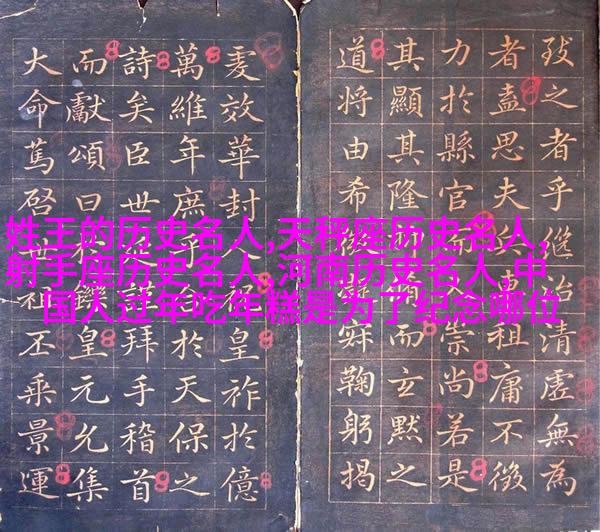 姓王的历史名人,天秤座历史名人,
射手座历史名人,河南历史名人,中
国人过年吃年糕是为了纪念哪位
致之者乎治清虛無為
者盍思夫兵租庸不徵
力於縣官而崇尚若是
其顯其隆而玄默之
道將由希寂鞠躬揭
虔效華封皇祚於億
萬維年庶乎於天保之
詩矣臣世拜手稽首
而獻頌曰皇元允集
大命篤啓世祖丕乘景運